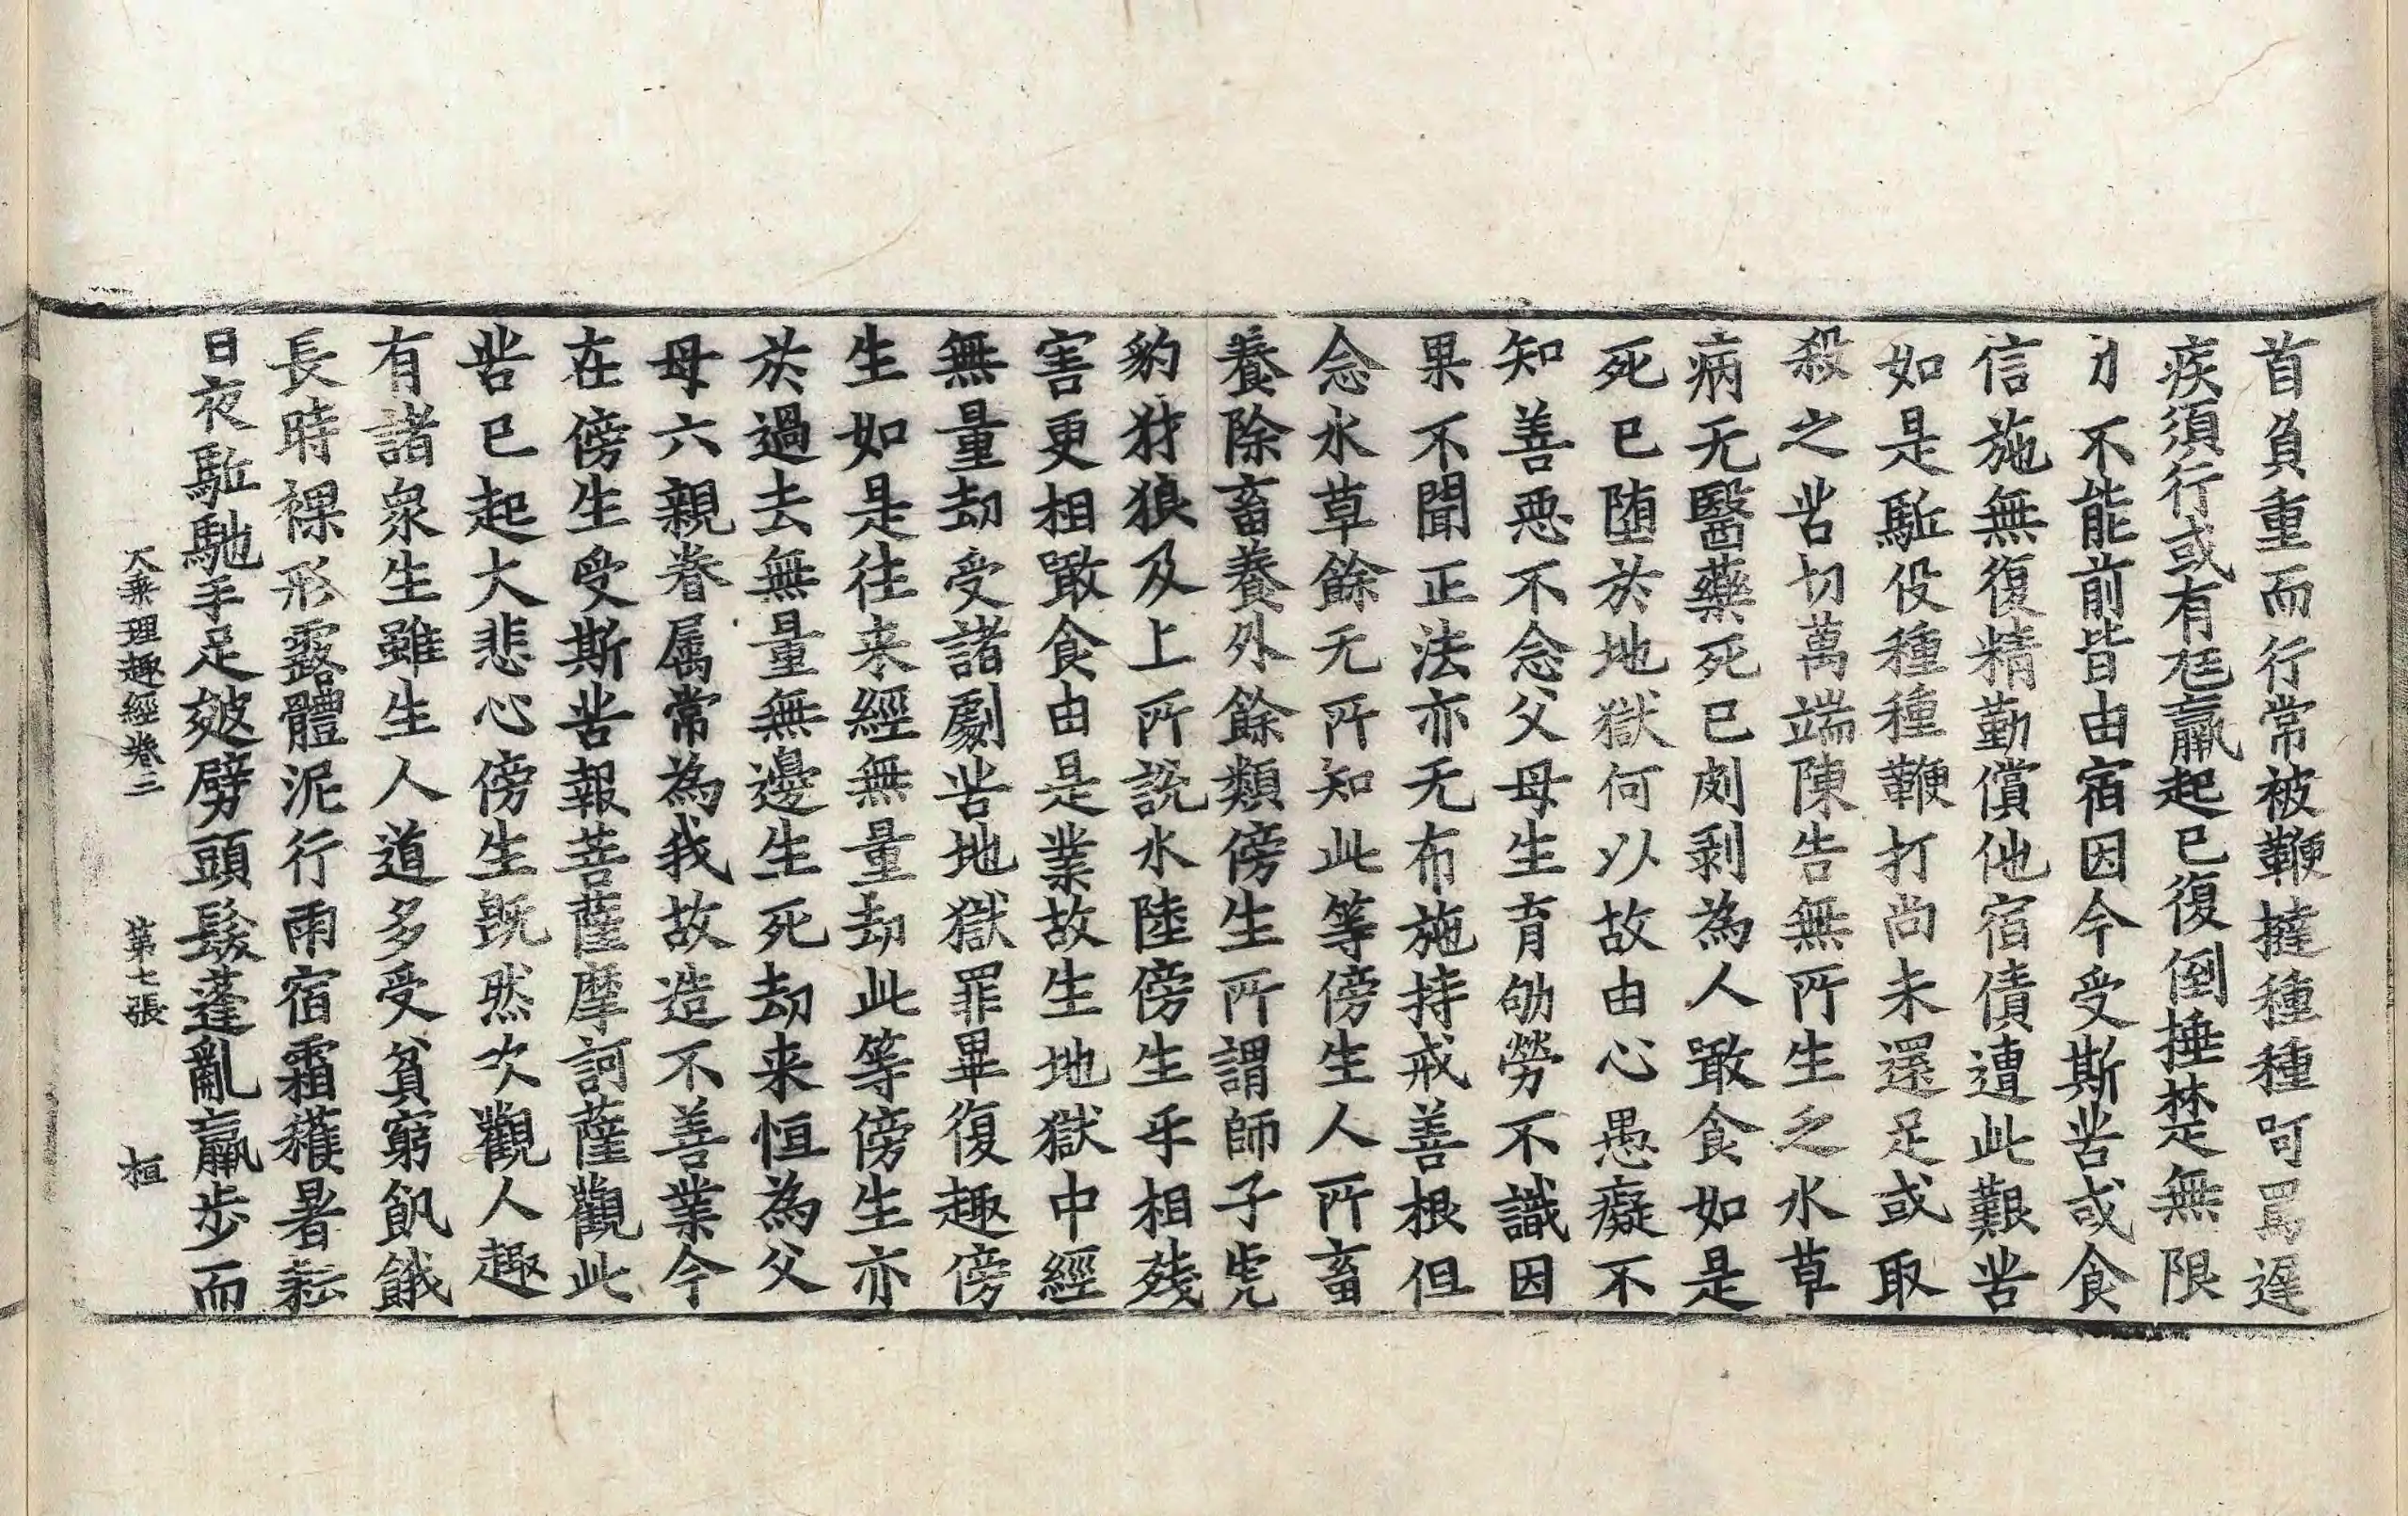 首負重而行常被鞭撻種種呵罵遲
疾須行或有尫羸起已復倒捶楚無限
力不能前皆由宿因今受斯苦或食
信施無復精勤償他宿債遭此艱苦
如是駈役種種鞭打尚未還足或取
殺之苦切萬端陳告無所生之水草
病无醫藥死已剥剥為人噉食如是
死已堕於地獄何以故由心愚癡不
知善惡不念父母生育劬勞不識因
果不聞正法亦无布施持戒善根但
念水草餘无所知此等傍生人所畜
養除畜養外餘類傍生所謂師子虎
豹豺狼及上所說水陸傍生乎相殘
害更相噉食由是業故生地獄中經
無量劫受諸劇苦地獄罪畢復趣傍
生如是往来經無量劫此等傍生亦
於過去無量無邊生死劫来恒為父
母六親眷属常為我故造不善業今
在傍生受斯苦報菩薩摩訶薩觀此
苦已起大悲心傍生旣然次觀人趣
有諸衆生雖生人道多受貧窮飢餓
長時裸形露體泥行雨宿霜穫暑耘
日夜駈馳手足皴劈頭髮蓬亂羸步而
大乘理趣經卷二 第七張 桓